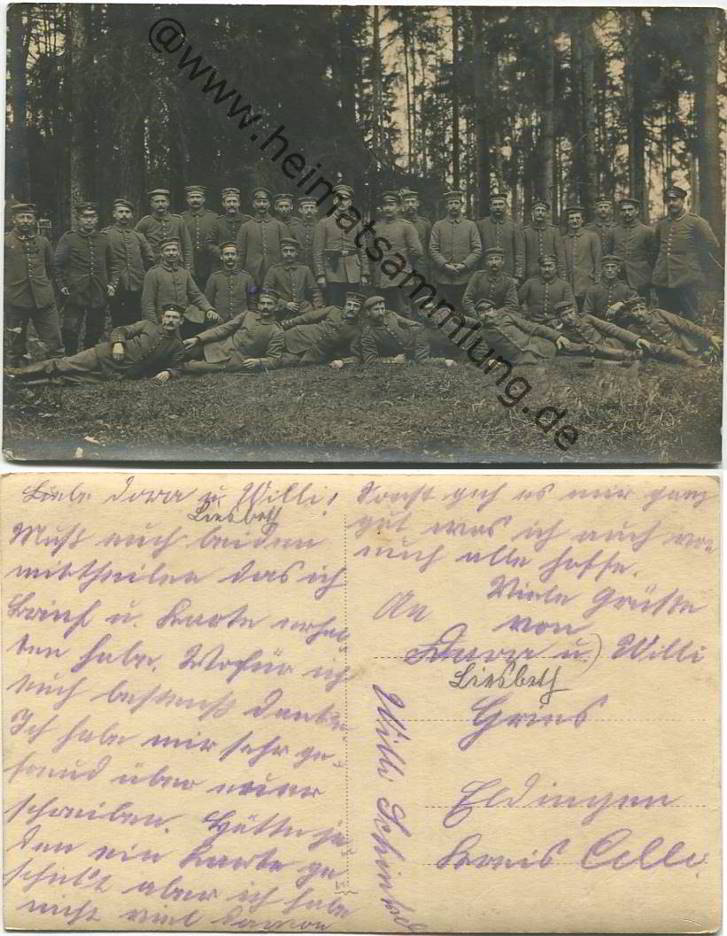 @www.heimatsammlung.de
Liebe Dora u. Willi!
Liesbeth
Muß euch beiden
mittheilen das ich
Brief u. Karte erhal-
ten habe. Wofür ich
euch bestens danke.
Ich habe mir sehr ge-
freud über euer
schreiben. Hätte je-
den ein Karte ge-
schikt aber ich habe
nicht viel davon
Sonst geh es mir ganz
gut was ich auch von
euch alle hoffe.
Viele Grüße
von
Willi
An
Dora u. Willi
Liesbeth
Gries
Eldingen
Kreis Celle.